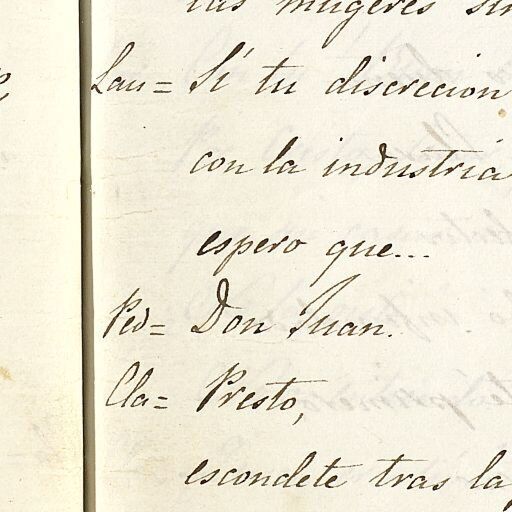 las mugeres
Lau= Sí tu discrecion
con la industria
espero que...
Ped= Don Juan.
Cla= Presto,
escondete tras la